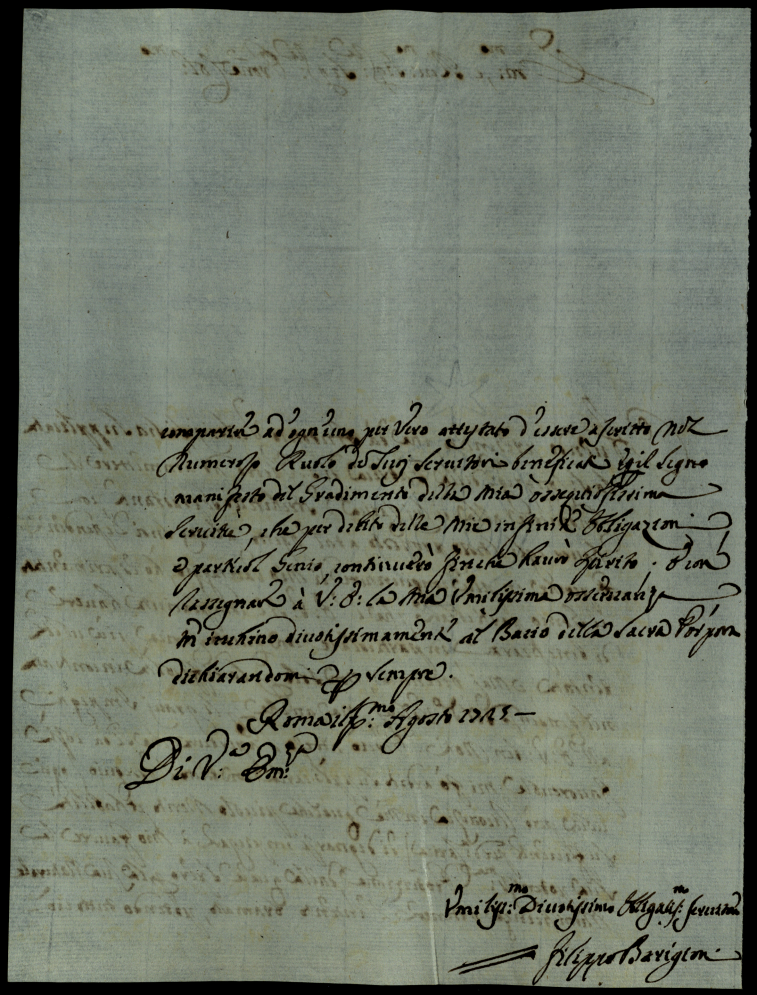 comparir ad ogn'uno per vero attestato d'essere ascritto nel
Numeroso Ruolo de Suoi Servitori beneficati e il Segno
manifesto del Gradimento della mia ossequiosissima
Servitù, che per debito delle mie infinite Obligazioni
e partial Genio, continuerò finche haurò Spirito. e con
rassegnare à V: E: la mia Umilissima osservanza
m'inchino divotissimamente al Bacio della Sacra Porpora
dichiarandomi sempre.
Roma il p.mo Agosto 1725 –
Di V.a Em.za
Umiliss.mo Divotissimo Obligatiss.mo Servitore
Filippo Barigioni